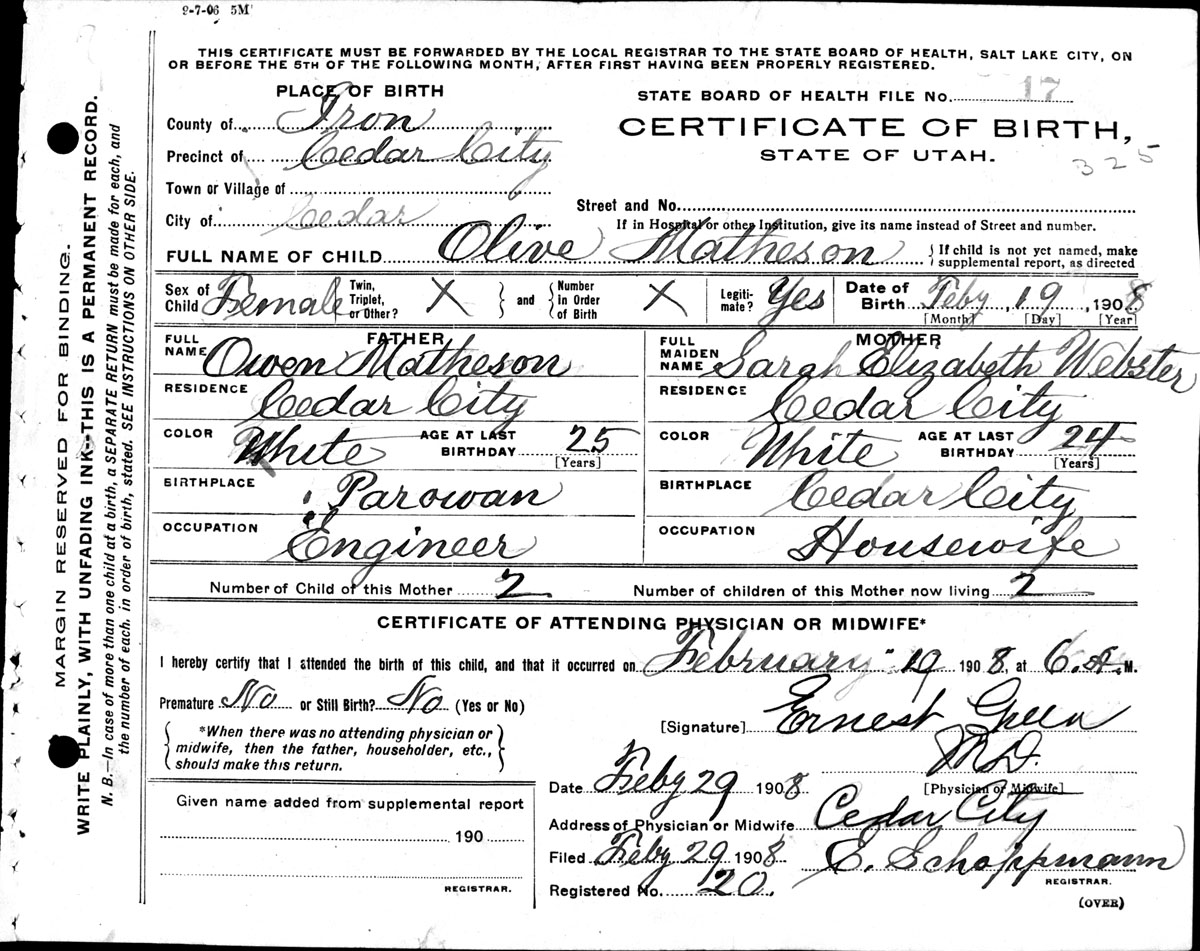 2-7-06 5M
THIS CERTIFICATE MUST BE FORWARDED BY THE LOCAL REGISTRAR TO THE STATE BOARD OF HEALTH, SALT LAKE CITY, ON
OR BEFORE THE 5TH OF THE FOLLOWING MONTH, AFTER FIRST HAVING BEEN PROPERLY REGISTERED.
PLACE OF BIRTH
STATE BOARD OF HEALTH FILE No. 17
County of Iron
CERTIFICATE OF BIRTH,
Precinct of Cedar City
STATE OF UTAH.
325
Town or Village of
City of Cedar
Street and No.
If in Hospital or other Institution, give its name instead of Street and number.
FULL NAME OF CHILD Olive Matheson
{If child is not yet named, make
supplemental report, as directed
Sex of Child Female
Twin, Triplet, or Other? X } and { Number in Order of Birth X
Legiti-mate? Yes
Date of Birth Feby 19, 1908
[Month] [Day] [Year]
FATHER
FULL NAME Owen Matheson
MOTHER
FULL MAIDEN NAME Sarah Elizabeth Webster
RESIDENCE Cedar City
RESIDENCE Cedar City
COLOR White AGE AT LAST BIRTHDAY 25 [Years]
COLOR White AGE AT LAST BIRTHDAY 24 [Years]
BIRTHPLACE Parowan
BIRTHPLACE Cedar City
OCCUPATION Engineer
OCCUPATION Housewife
Number of Child of this Mother 2
Number of children of this Mother now living 2
CERTIFICATE OF ATTENDING PHYSICIAN OR MIDWIFE*
I hereby certify that I attended the birth of this child, and that it occurred on February 19 1908, at 6. A. M.
Premature No or Still Birth? No (Yes or No)
[Signature] Ernest Green
M.D.
[Physician or Midwife]
{*When there was no attending physician or
midwife, then the father, householder, etc.,
should make this return.}
Date Feby 29 1908
Given name added from supplemental report
190
REGISTRAR.
Address of Physician or Midwife Cedar City
Filed Feby 29 1908 E. Schoppmann
REGISTRAR.
Registered No. 20.
(OVER)
MARGIN RESERVED FOR BINDING.
WRITE PLAINLY, WITH UNFADING INK-THIS IS A PERMANENT RECORD.
N. B.—In case of more than one child at a birth, a SEPARATE RETURN must be made for each, and
the number of each. in order of birth, stated. SEE INSTRUCTIONS ON OTHER SIDE.